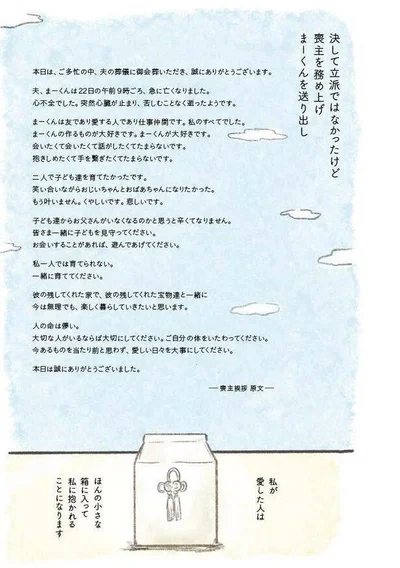 決して立派ではなかったけど
喪主を務め上げ
まーくんを送り出し
本日は、ご多忙の中、夫の葬儀に御会葬いただき、誠にありがとうございます。
夫、まーくんは22日の午前9時ごろ、急に亡くなりました。
心不全でした。突然心臓が止まり、苦しむことなく逝ったようです。
まーくんは友であり愛する人であり仕事仲間です。私のすべてでした。
まーくんの作るものが大好きです。まーくんが大好きです。
会いたくて会いたくて話がしたくてたまらないです。
抱きしめたくて手を繋ぎたくてたまらないです。
二人で子ども達を育てたかったです。
笑い合いながらおじいちゃんとおばあちゃんになりたかった。
もう叶いません。くやしいです。悲しいです。
子ども達からお父さんがいなくなるのかと思うと辛くてなりません。
皆さま一緒に子どもを見守ってください。
お会いすることがあれば、遊んであげてください。
私一人では育てられない。
一緒に育ててください。
彼の残してくれた家で、彼の残してくれた宝物達と一緒に
今は無理でも、楽しく暮らしていきたいと思います。
人の命は儚い。
大切な人がいるならば大切にしてください。ご自分の体をいたわってください。
今あるものを当たり前と思わず、愛しい日々を大事にしてください。
本日は誠にありがとうございました。
―喪主挨拶 原文―
私が
愛した人は
ほんの小さな
箱に入って
私に抱かれる
ことになります